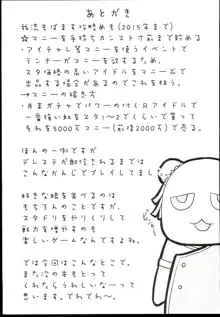 あとがき
我流もばます攻略めも(2015年まで)
☆マニーを手持ちカンストナ前まで貯める
・アイチャレ等マニーを使うイベントで
ランナーがマニーを欲するため、
スタ価格の高いアイドルをマニー出で
出品する場合があるのでこれを狙う。
→マニーの稼ぎ方
・月末ガチャでパワーの付くRアイドルで
一番強い奴をスタ1〜2くらいで買って
それを5000万マニー(前後2000万)で売る。
ほんの一例ですが
デレステが配信されるまでは
こんなかんじでプレイしてました。
好きな娘を並べるのは
もちろんのことですが、
スタドリをやりくりして
戦力を増やすのも
楽しいゲームなんですよね。
では今回はこんなとこで。
また次の本もとって
くれたらうれしいなーって
思います。でわでわ〜。